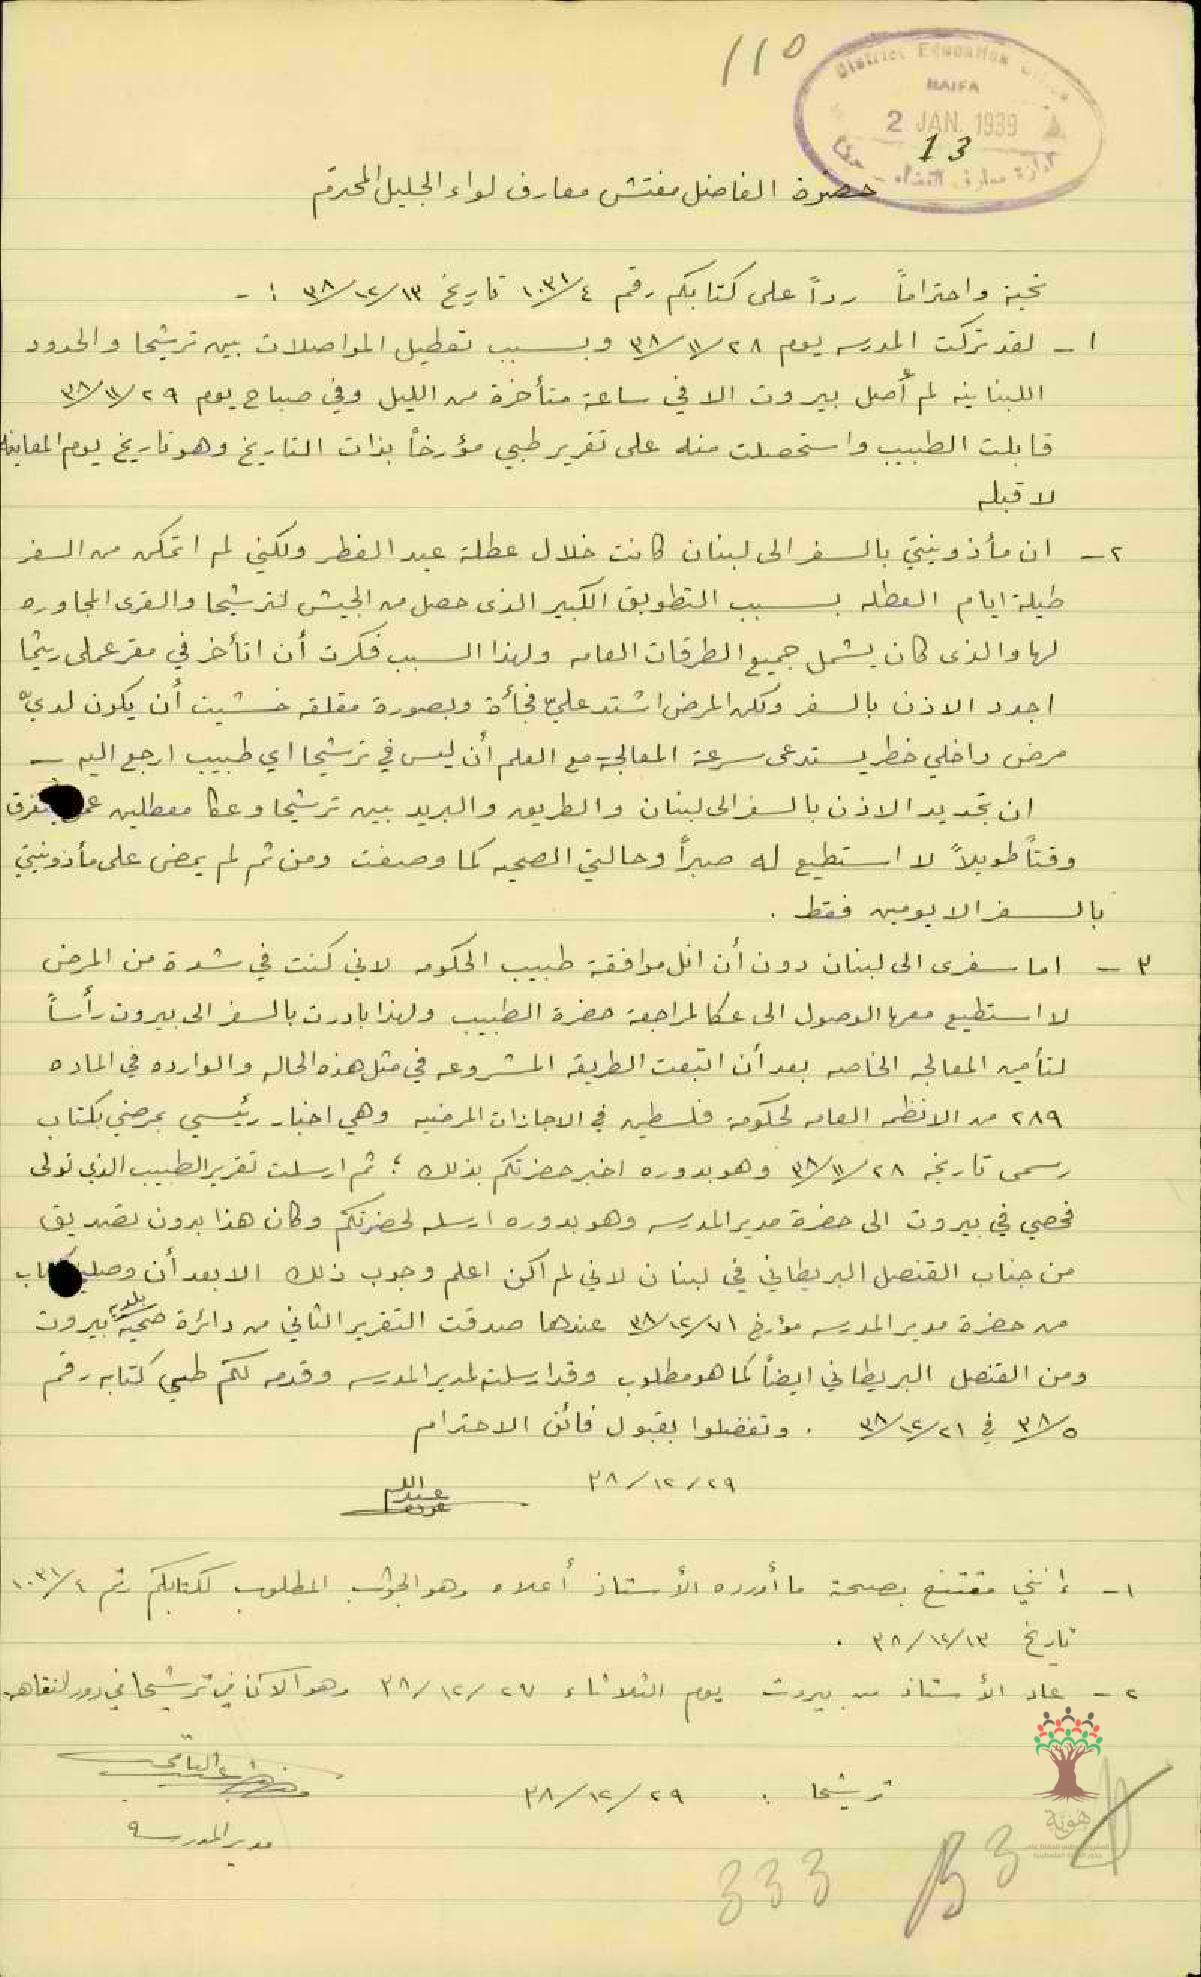 110
District Education Office
HAIFA
2 JAN. 1939
13
ادارة معارف القضاء - حيفا
حضرة الفاضل مفتش معارف لواء الجليل المحترم
تحية واحتراماً رداً على كتابكم رقم ١٠٣١/٤ تاريخ ٣٨/١٢/١٣ : -
١ - لقد تركت المدرسه يوم ٣٨/١١/٢٨ وبسبب تعطيل المواصلات بين ترشيحا والحدود
اللبنانيه لم أصل بيروت الا في ساعة متأخرة من الليل وفي صباح يوم ٣٨/١١/٢٩
قابلت الطبيب واستحصلت منه على تقرير طبي مؤرخاً بذات التاريخ وهو تاريخ يوم المعاينه
لا قبله
٢ - ان مأذونيتي بالسفر الى لبنان كانت خلال عطلة عيد الفطر ولكني لم اتمكن من السفر
طيلة ايام العطله بسبب التطويق الكبير الذى حصل من الجيش لترشيحا والقرى المجاوره
لها والذى كان يشمل جميع الطرقات العامه ولهذا السبب فكرت أن اتأخر في مقر عملى ريثما
اجدد الاذن بالسفر ولكن المرض اشتد عليّ فجأة وبصورة مقلقه خشيت أن يكون لديّ
مرض داخلي خطر يستدعى سرعة المعالجه مع العلم أن ليس في ترشيحا اي طبيب ارجع اليه -
ان تجديد الاذن بالسفر الى لبنان والطريق والبريد بين ترشيحا وعكا معطلين يستغرق
وقتاً طويلاً لا استطيع له صبراً وحالتي الصحيه كما وصفت ومن ثم لم يمض على مأذونيتي
بالسفر الا يومين فقط .
٣ - اما سفرى الى لبنان دون أن انل موافقة طبيب الحكومه لاني كنت في شدة من المرض
لا استطيع معها الوصول الى عكا لمراجعة حضرة الطبيب ولهذا بادرت بالسفر الى بيروت رأساً
لتأمين المعالجه الخاصه بعد أن اتبعت الطريقه المشروعه في مثل هذه الحاله والوارده في الماده
٢٨٩ من الانظمه العامه لحكومة فلسطين في الاجازات المرضيه وهي اخبار رئيسي بمرضي بكتاب
رسمى تاريخه ٣٨/١١/٢٨ وهو بدوره اخبر حضرتكم بذلك ؛ ثم ارسلت تقرير الطبيب الذي تولى
فحصي في بيروت الى حضرة مدير المدرسه وهو بدوره ارسله لحضرتكم وكان هذا بدون تصديق
من جناب القنصل البريطاني في لبنان لاني لم اكن اعلم وجوب ذلك الا بعد أن وصلني كتاب
من حضرة مدير المدرسه مؤرخ عندها صدقت التقرير الثاني من دائرة صحية بلدية بيروت
ومن القنصل البريطاني ايضاً كما هو مطلوب وقد ارسلته لمدير المدرسه وقدمه لكم طي كتابه رقم
٣٨/٥ في ٣٨/١٢/٢١ . وتفضلوا بقبول فائق الاحترام
٣٨/١٢/٢٩
عبدالله
١ - إنني مقتنع بصحة ما أورده الأستاذ أعلاه وهو الجواب المطلوب لكتابكم رقم ١٠٣١/٤
تاريخ ٣٨/١٢/١٣ .
٢ - عاد الأستاذ من بيروت يوم الثلاثاء ٣٨/١٢/٢٧ وهو الآن في ترشيحا في دور النقاهه.
ترشيحا : ٣٨/١٢/٢٩
مدير المدرسه
هوية
333